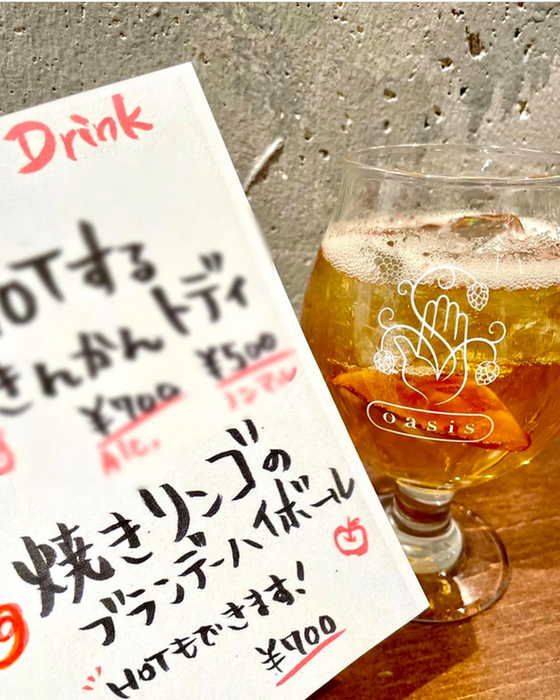 Drink
HOTする
きんかんトディ
¥700 ¥500
Alc. ノンアル
焼きリンゴの
ブランデーハイボール
HOTもできます!
¥700
oasis